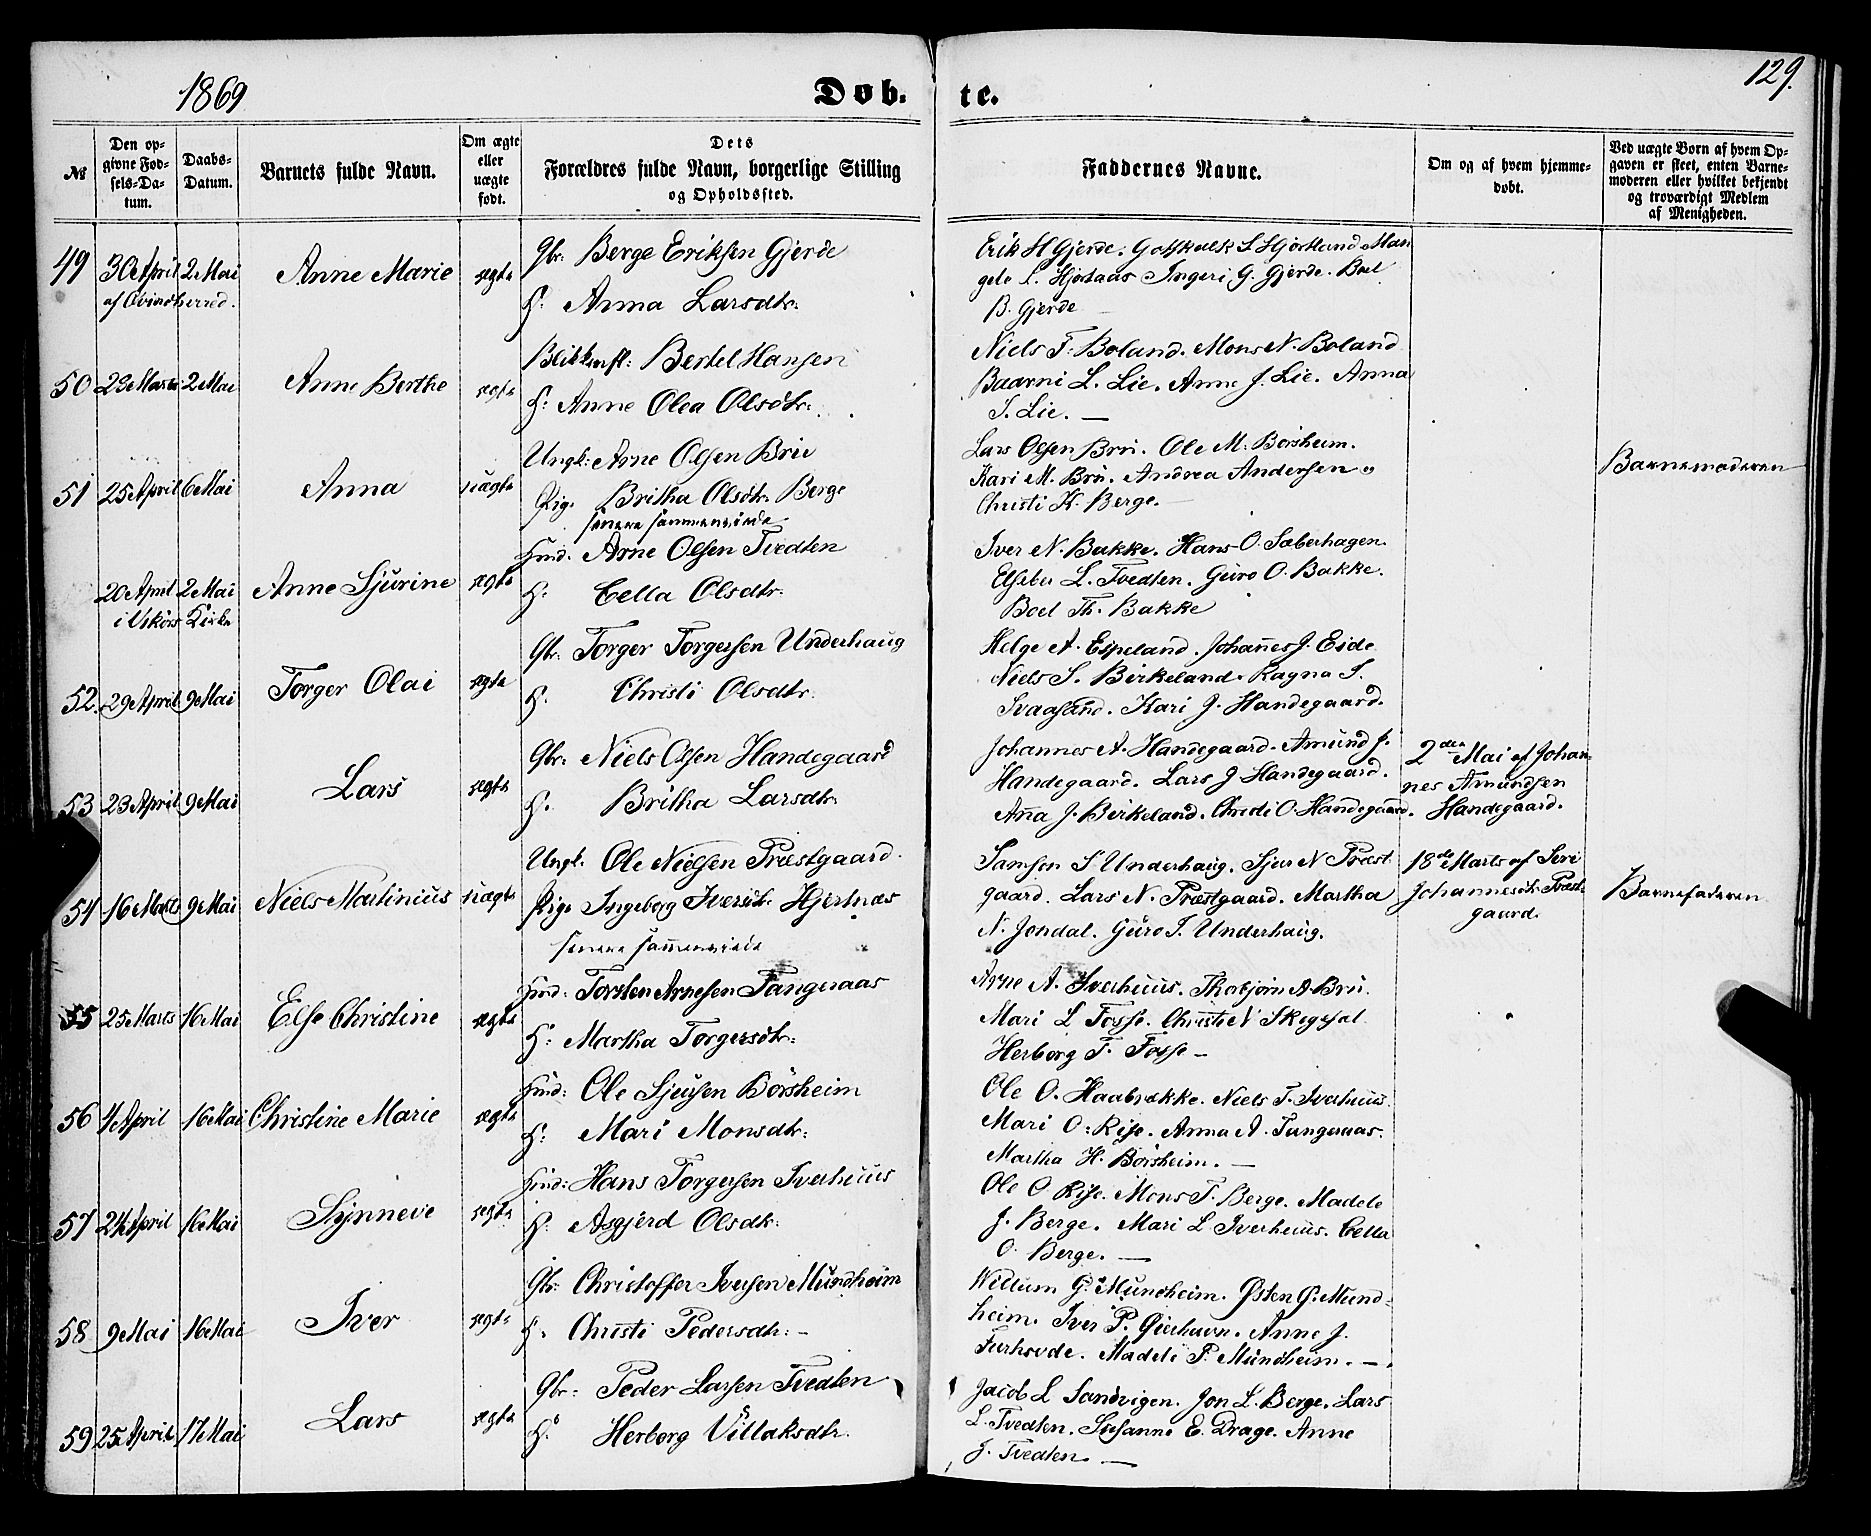 1869
Døb-
te.
129.
№
Den op-
givne Fød-
sels-Da-
tum.
Daabs-
Datum.
Barnets fulde Navn.
Om ægte
eller
uægte
født.
Dets
Forældres fulde Navn, borgerlige Stilling
og Opholdssted.
Faddernes Navne.
Om og af hvem hjemme-
døbt.
Ved uægte Børn af hvem Op-
gaven er skeet, enten Barne-
moderen eller hvilket bekjendt
og troværdigt Medlem
af Menigheden.
49 30 April 2 Mai Anne Marie ægte Gbr: Berge Eriksen Gjerde
H: Anna Larsdtr:
Erik H Gjerde. Gotskalk S Hjortland Man
gele L. Ingeri G. Gjerde. Boel
B. Gjerde
50 2 Mai Anne Berthe ægte Bertel Hansen
H: Anne Olea Olsdtr:
Niels T. Boland. Mons N. Boland
Baarni L. Lie. Anne J. Lie. Anna
J. Lie. —
51 25 April 6 Mai Anna uægte Ungk: Arne Olsen Brue
Pig. Britha Olsdtr. Berge
senere sammenviede
Lars Olsen Bru. Ole M. Børsheim.
Kari M. Bru. Andrea Andersen
Christi K. Berge. —
Barnemoderen
20 April 2 Mai Anne Sjurine ægte Huusd: Arne Olsen Tvedten
i Vikørs Kirke
H: Cella Olsdtr:
Iver N. Bakke. Hans O. Sæberhagen.
Elseber L. Tvedten. Guro O. Bakke.
Boel Th. Bakke
52. 29 April 9 Mai Torger Olai ægte Gbr: Torger Torgersen Underhaug
H: Christi Olsdtr:
Helge A. Espeland. Johannes J. Eide
Niels S. Birkeland. Ragna S.
Svaasand. Kari J. Handegaard.
53 23 April 9 Mai Lars ægte Gbr: Niels Olsen Handegaard
H. Britha Larsdtr.
Johannes A. Handegaard. Amund J.
Handegaard. Lars J Handegaard.
Anna J. Birkeland. Christi O. Handegaard.
2den Mai af Johan-
nes Amundsen
Handegaard.
54 16 Marts 9 Mai Niels Martinius uægte Ungk. Ole Nielsen Præstgaard.
Pige Ingeborg Iversdtr. Hjertnæs
senere sammenviede
Samson S Underhaug. Sjur N Præst
gaard. Lars N. Præstgaard. Martha
N. Jondal. Guro T. Underhaug.
18de Marts af Siri
Johannesdtr Præst-
gaard.
Barnefaderen
55 25 Marts 16 Mai Else Christine ægte Huusd: Torsten Arnesen Tangeraas
H: Martha Torgersdtr:
Arne A. Iverhuus. Thorbjørn A. Bru.
Mari L Fosse. Christi N
Herborg T. Fosse —
56 4 April 16 Mai Christine Marie ægte Huusd: Ole Sjursen Børsheim
H: Mari Monsdtr:
Ole O. Haabrekke. Niels T. Iverhuus.
Mari O. Rise. Anna A. Tangeraas.
Martha H. Børsheim. —
57 24 April 16 Mai Synneve ægte Huusd: Hans Torgersen Iverhuus
H: Asgjerd Olsdtr:
Ole O Rise. Mons T. Berge. Madele
J. Berge. Mari L Iverhuus. Cella
O. Berge. —
58 9 Mai 16 Mai Iver ægte Gbr: Christoffer Iversen Mundheim
H. Christi Pedersdtr: —
Willum G. Mundheim. Østen G. Mund-
heim. Iver P. Anne J.
Furhovde. Madele P. Mundheim. —
59 25 April 17 Mai Lars ægte Gbr: Peder Larsen Tvedten
H: Herborg Villaksdtr.
Jacob L Sandvigen. Jon L. Berge. Lars
L. Tvedten. Susanne E. Drage. Anne
J. Tvedten —